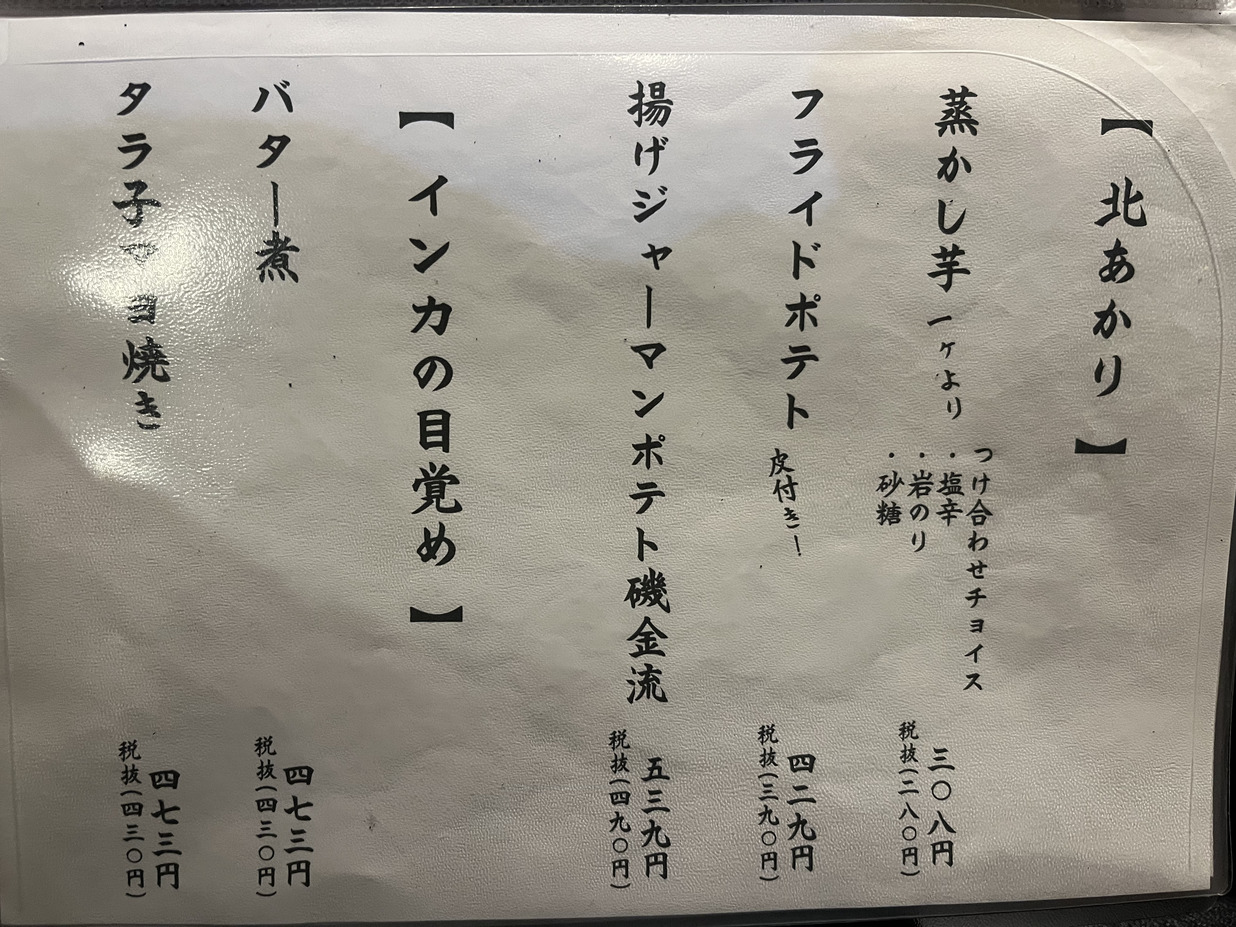 【北あかり】
蒸かし芋 一ヶより
つけ合わせチョイス
・塩辛
・岩のり
・砂糖
三〇八円
税抜(二八〇円)
フライドポテト 皮付き!
四二九円
税抜(三九〇円)
揚げジャーマンポテト磯金流
五三九円
税抜(四九〇円)
【インカの目覚め】
バター煮
四七三円
税抜(四三〇円)
タラ子マヨ焼き
四七三円
税抜(四三〇円)